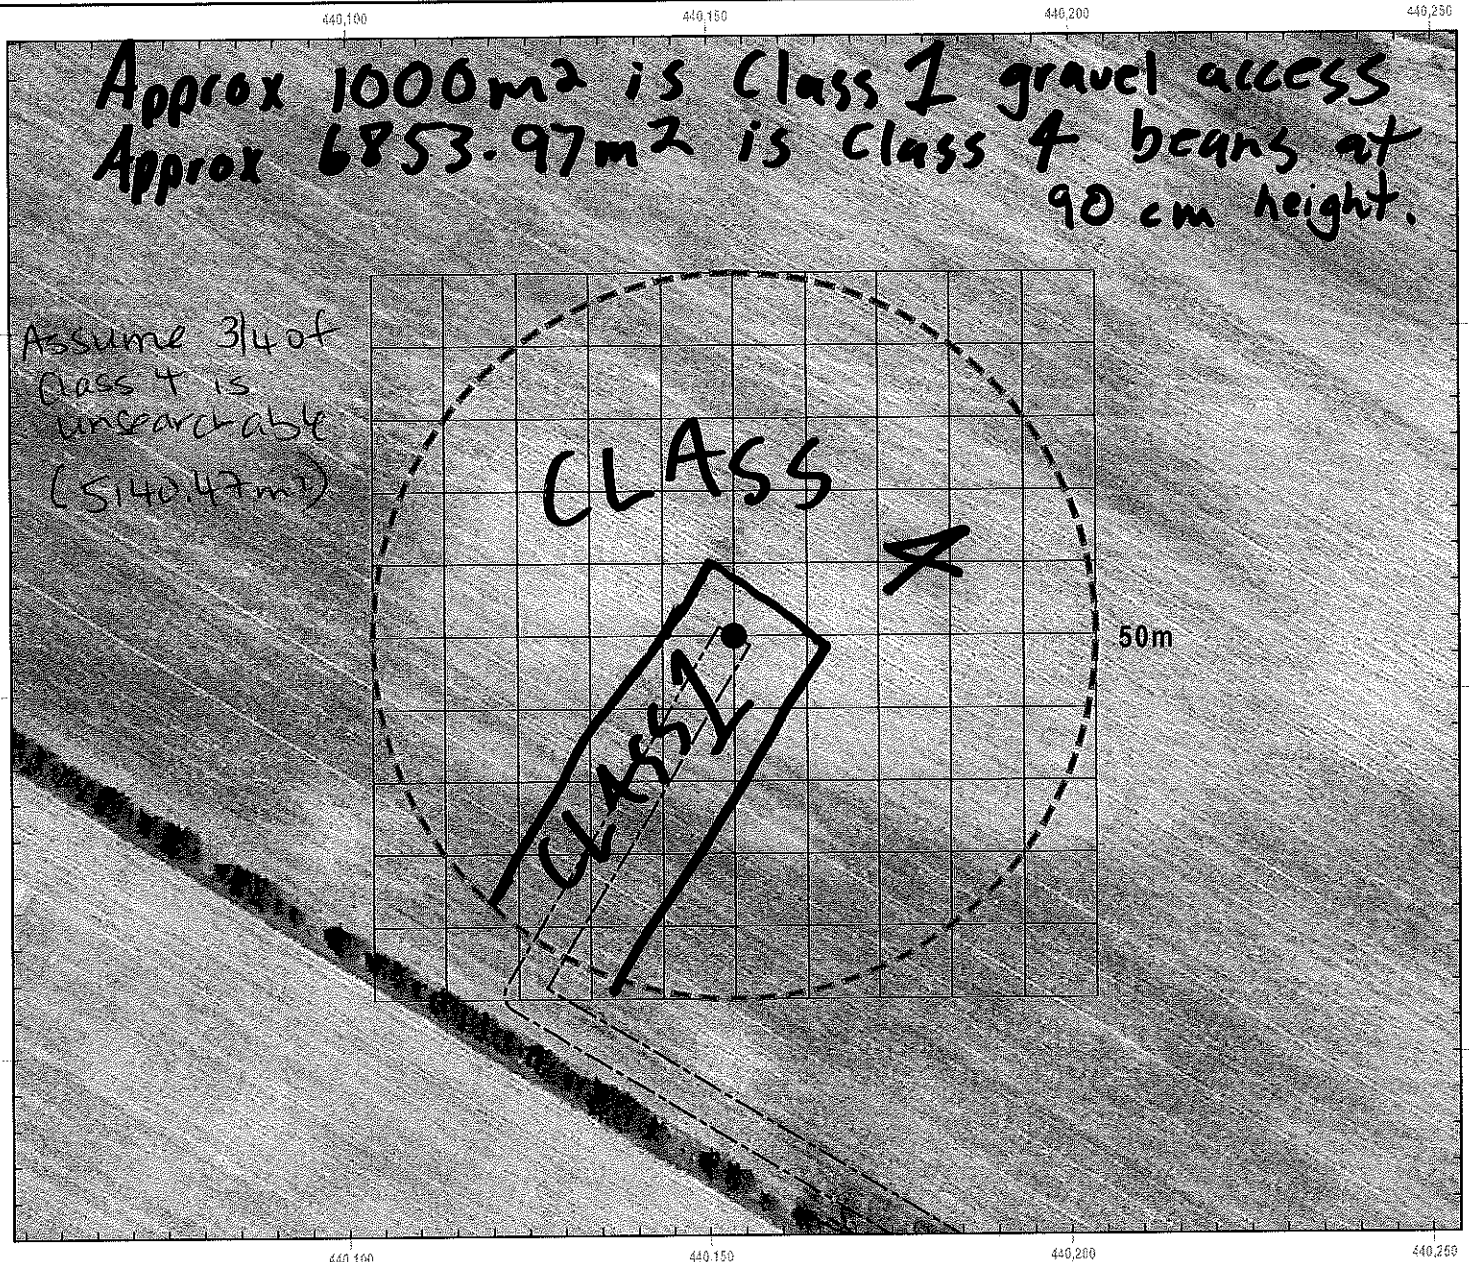 440,100 440,150 440,200 440,250
Approx 1000m² is Class 1 gravel access
Approx 6853.97m² is Class 4 beans at
90 cm height.
Assume 3/4 of
Class 4 is
unsearchable
(5140.47m²)
CLASS
4
50m
CLASS 1
440,100 440,150 440,200 440,250